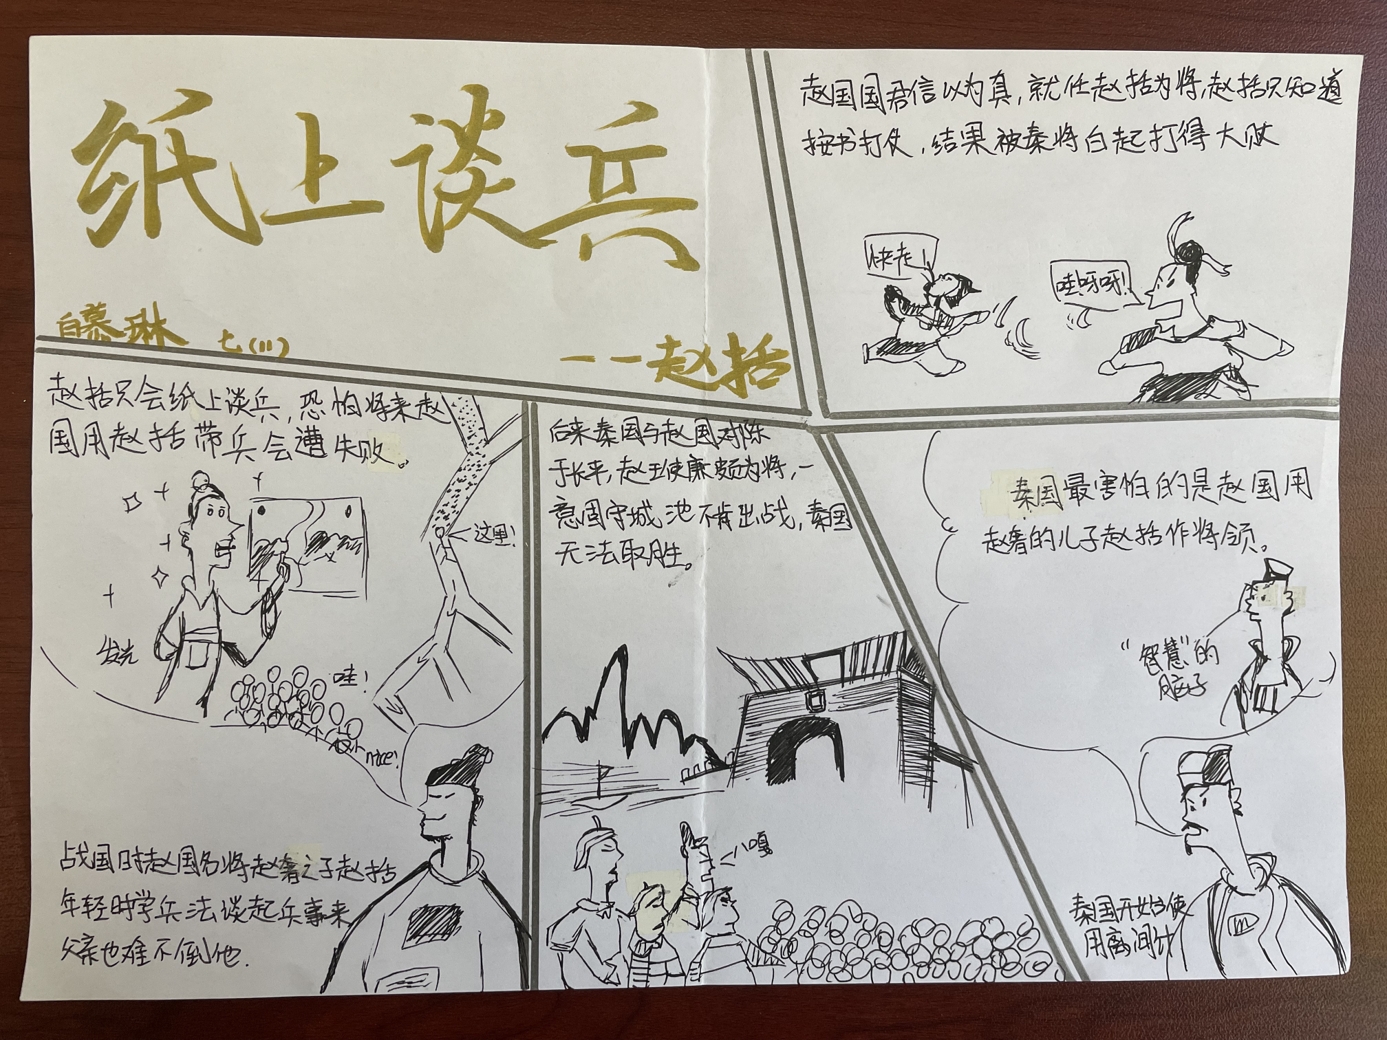 纸上谈兵
白慕琳 七(11)
——赵括
赵括只会纸上谈兵，恐怕将来赵
国用赵括带兵会遭失败。
这里!
发光
哇!
nice!
战国时赵国名将赵奢之子赵括
年轻时学兵法谈起兵事来
父亲也难不倒他.
后来秦国与赵国对阵
于长平，赵王使廉颇为将，一
意固守城池不肯出战，秦国
无法取胜。
八嘎
秦国最害怕的是赵国用
赵奢的儿子赵括作将领。
“智慧”的
脑子
秦国开始使
用离间计
赵国国君信以为真，就任赵括为将，赵括只知道
按书打仗，结果被秦将白起打得大败
快走!
哇呀呀!